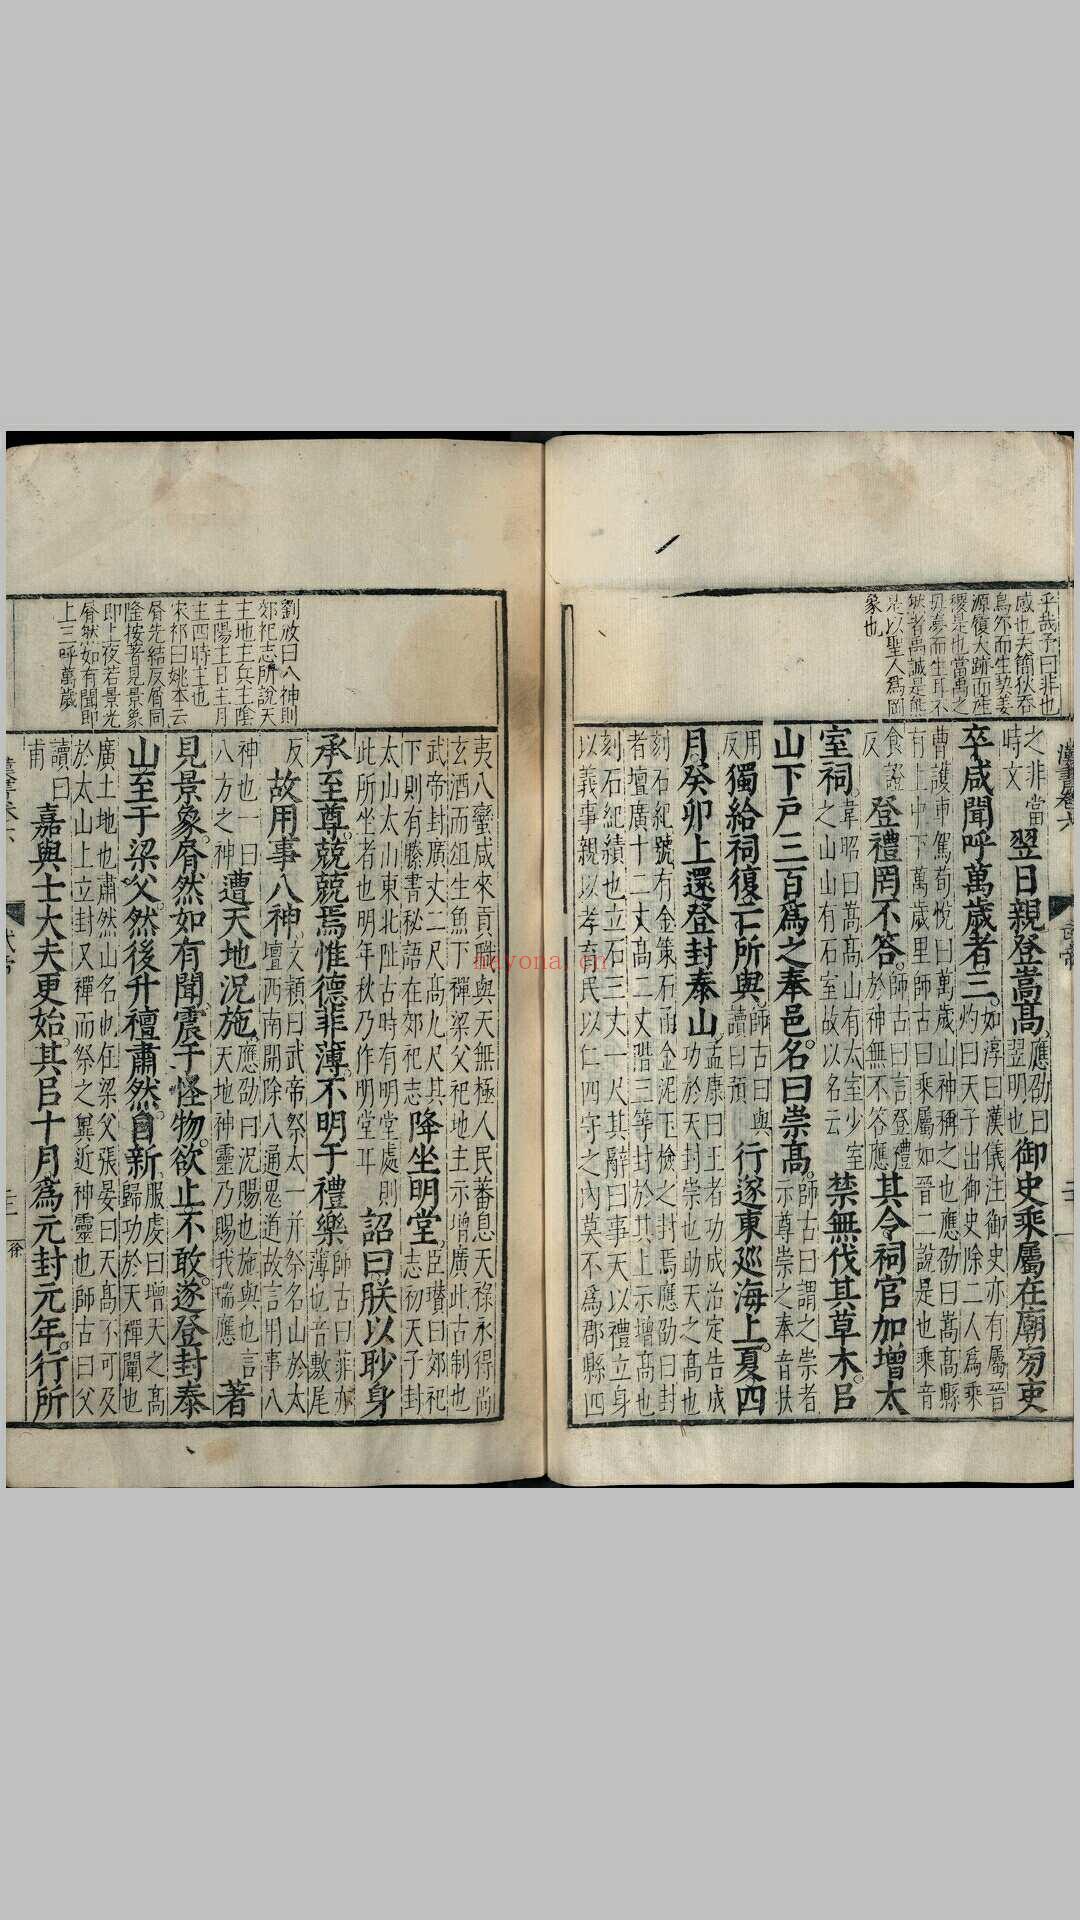 乎哉予曰非也
感也夫簡狄吞
鳥卵而生契姜
源履大跡而生
稷是也當禹之
母夢而生耳不
然者禹誠是熊
是以聖人爲罔
象也
之非當
時文
翌日親登嵩高
應劭曰
翌明也
御史乘屬在廟旁吏
卒咸聞呼萬歲者三
如淳曰漢儀注御史亦有屬晉
灼曰天子出御史除二人爲乘
曹護車駕荀悅曰萬歲山神稱之也應劭曰嵩高縣
有上中下萬歲里師古曰乘屬如晉二說是也乘音
食證
反
登禮罔不答
師古曰言登禮
於神無不答應
其令祠官加增太
室祠
韋昭曰嵩高山有太室少室
之山山有石室故以名云
禁無伐其草木㠯
山下戶三百爲之奉邑名曰崇高
師古曰謂之崇者
示尊崇之奉音扶
用
反
獨給祠復亡所與
師古曰與
讀曰預
行遂東巡海上夏四
月癸卯上還登封泰山
孟康曰王者功成治定告成
功於天封崇也助天之高也
刻石紀號有金策石函金泥玉檢之封焉應劭曰封
者壇廣十二丈高二丈階三等封於其上示增高也
刻石紀績也立石三丈一尺其辭曰事天以禮立身
以義事親以孝育民以仁四守之內莫不爲郡縣四
劉攽曰八神則
郊祀志所說天
主地主兵主陰
主陽主日主月
主四時主也
宋祁曰姚本云
脣先結反脣同
隆按著見景象
即上夜若景光
脣然如有聞即
上三呼萬歲
夷八蠻咸來貢職與天無極人民蕃息天祿永得尚
玄酒而俎生魚下禪梁父祀地主示增廣此古制也
武帝封廣丈二尺高九尺其
下則有縢書秘語在郊祀志
降坐明堂
臣瓚曰郊祀
志初天子封
太山太山東北阯古時有明堂處則
此所坐者也明年秋乃作明堂耳
詔曰朕以眇身
承至尊兢兢焉惟德菲薄不明于禮樂
師古曰菲亦
薄也音敷尾
反
故用事八神
文穎曰武帝祭太一并祭名山於太
壇西南開除八通鬼道故言用事八
神也一曰
八方之神
遭天地況施
應劭曰況賜也施與也言
天地神靈乃賜我瑞應
著
見景象脣然如有聞震于怪物欲止不敢遂登封泰
山至于梁父然後升䄠肅然自新
服虔曰增天之高
歸功於天禪闡也
廣土地也肅然山名也在梁父張晏曰天高不可及
於太山上立封又禪而祭之冀近神靈也師古曰父
讀曰
甫
嘉與士大夫更始其㠯十月爲元封元年行所
nayona.cn